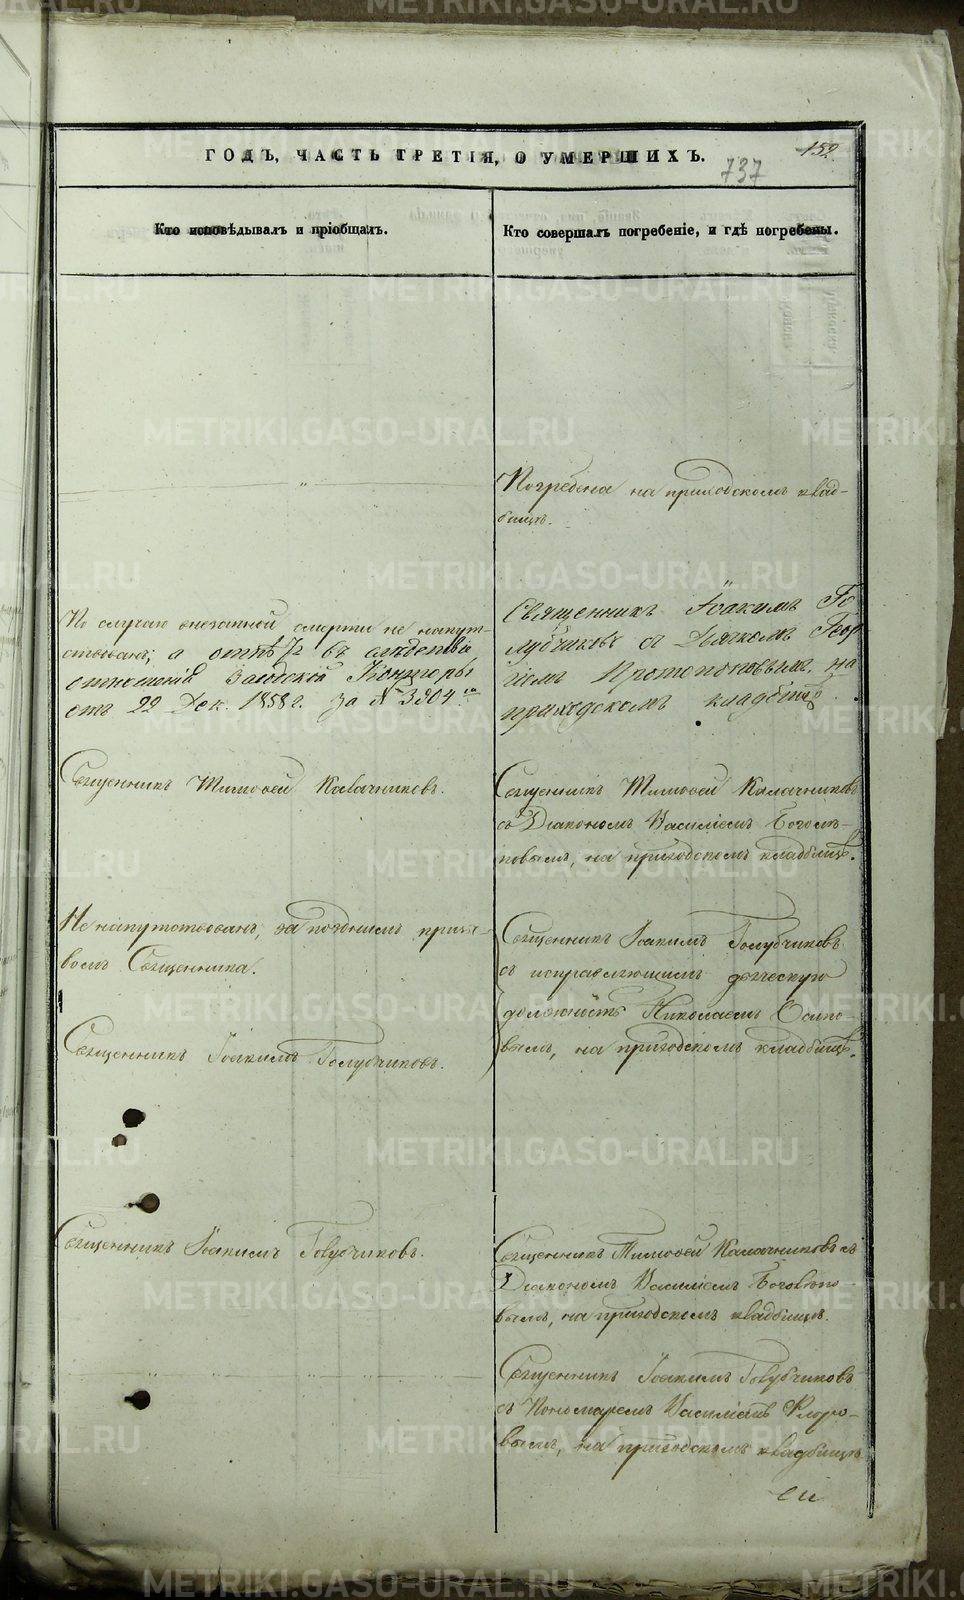 ГОДЪ, ЧАСТЬ ТРЕТІЯ, О УМЕРШИХЪ.
152
737
Кто исповѣдывалъ и пріобщалъ.
Кто совершалъ погребеніе, и гдѣ погребены.
Погребена на приходскомъ клад-
бищѣ.
По случаю внезапной смерти не напут-
ствована; а отпѣта въ слѣдствіе
отношенія Заводской Конторы
отъ 22 Дек. 1858 г. за № 3304
Священникъ Іоакимъ Го
лубчиковъ съ Дьячкомъ Геор
гіемъ Протопоповымъ, на
приходскомъ кладбищѣ.
Священникъ Тимофей Калачниковъ.
Священникъ Тимофей Калачниковъ
съ Діакономъ Василіемъ Боголѣ-
повымъ, на приходскомъ кладбищѣ.
Не напутствованъ, за позднимъ призы-
вомъ Священника.
Священникъ Іоакимъ Голубчиковъ.
Священникъ Іоакимъ Голубчиковъ
съ исправляющимъ дьяческую
должность Николаемъ Осипо-
вымъ, на приходскомъ кладбищѣ.
Священникъ Іоакимъ Голубчиковъ.
Священникъ Тимофей Калачниковъ съ
Діакономъ Василіемъ Боголѣпо-
вымъ, на приходскомъ кладбищѣ.
Священникъ Іоакимъ Голубчиковъ
съ Пономаремъ Василіемъ Флоро-
вымъ, на приходскомъ кладбищѣ
METRIKI.GASO-URAL.RU